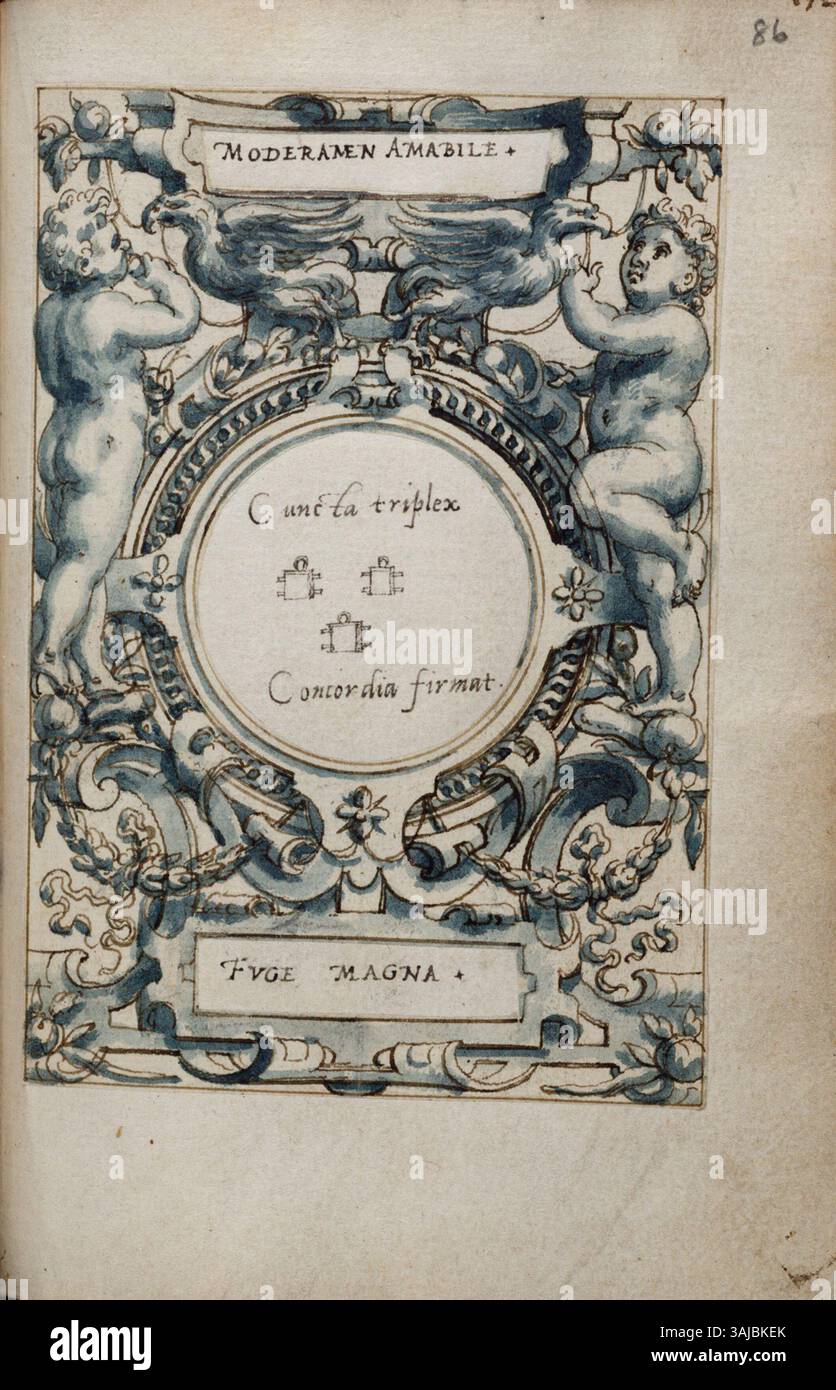 86
MODERAMEN AMABILE
Cuncta triplex
Concordia firmat.
FVGE MAGNA
alamy
Image ID: 3AJBKEK
www.alamy.com